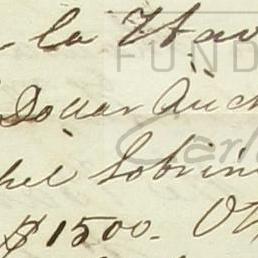 la Hav
FUND
Dollar Anch
Carl
hel Sobrin
$1500. Ot